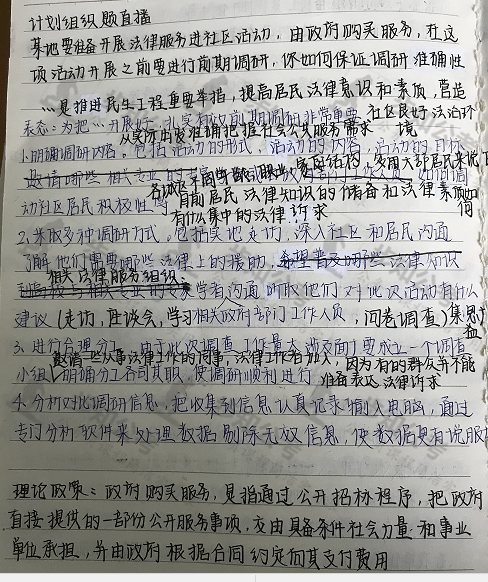 计划组织题直播
某地要准备开展法律服务进社区活动，由政府购买服务，在这
项活动开展之前要进行前期调研，你如何保证调研准确性
…是推进民生工程重要举措，提高居民法律意识和素质，营造
表态：为把…开展好，扎实有效前期调研非常重要 社区良好法治环境
从实际出发准确把握社会公共服务需求
1.明确调研内容。包括活动的形式，活动的内容，活动的目标
邀请哪些相关专业的 如何调
各城区不同年龄 职业 家庭结构，多用大部居民来说
动社区居民积极性等 目前居民法律知识的储备和法律素质如何
有什么集中的法律诉求
2、采取多种调研方式。包括实地走访，深入社区和居民沟通
了解他们需要哪些法律上的援助，希望普及哪些法律知识
相关法律服务组织、
专家学者沟通听取他们对此次活动有什么
建议（走访，座谈会，学习相关政府部门工作人员，问卷调查）集思广益
3、进行合理分工。由于此次调查工作量大涉及面广要成立一个调查
邀请一些从事法律工作的同事，法律工作者加入，因为有的群众并不能
小组 明确分工各司其职，使调研顺利进行 准备表达法律诉求
4、分析对此调研信息。把收集到信息认真记录输入电脑，通过
专门分析软件来处理数据剔除无效信息，使数据更有说服
理论政策：政府购买服务，是指通过公开招标程序，把政府
直接提供的一部份公开服务事项，交由具备条件社会力量和事业
单位承担，并由政府根据合同约定向其支付费用